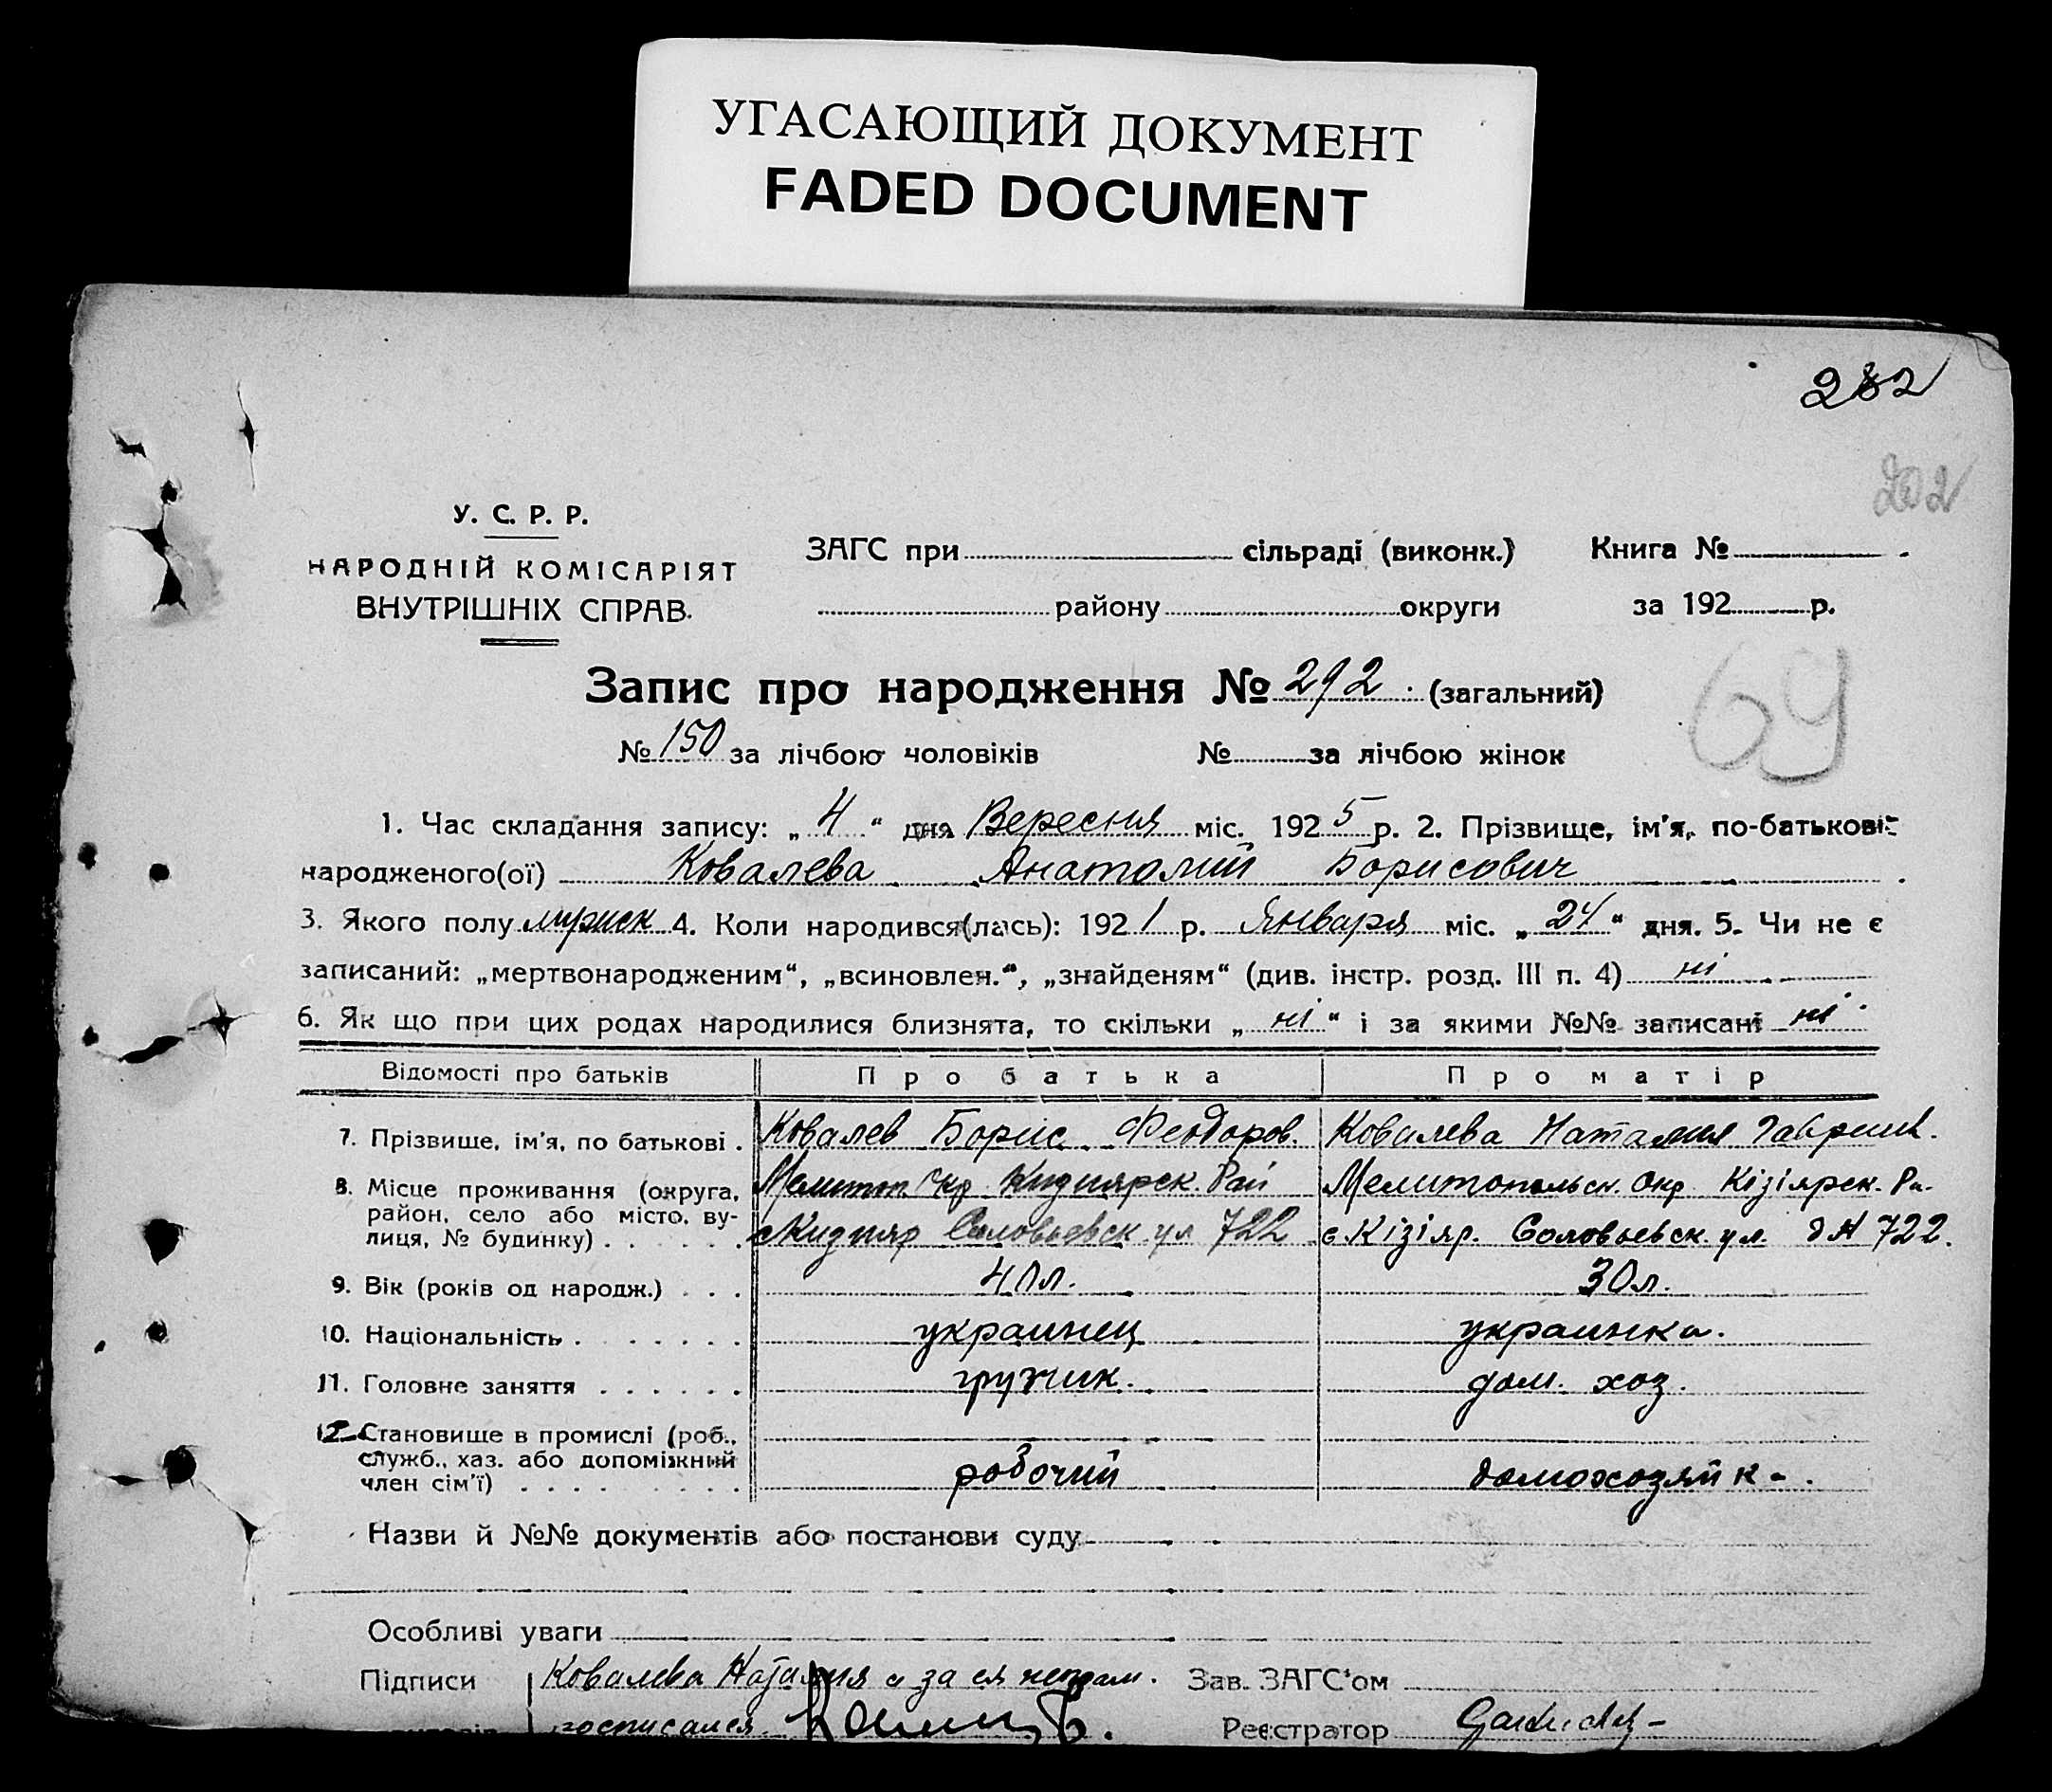 УГАСАЮЩИЙ ДОКУМЕНТ
FADED DOCUMENT
282
202
У. С. Р. Р.
НАРОДНІЙ КОМІСАРІЯТ
ВНУТРІШНІХ СПРАВ.
ЗАГС при сільраді (виконк.) Книга №
району округи за 192 р.
69
Запис про народження № 292 (загальний)
№ 150 за лічбою чоловіків № за лічбою жінок
1. Час складання запису: „ 4 “ дня Вересня міс. 1925 р. 2. Прізвище, ім'я, по-батькові
народженого(ої) Ковалева Анатолий Борисович
3. Якого полу мужск 4. Коли народився(лась): 1921 р. Января міс. „ 24 “ дня. 5. Чи не є
записаний: „мертвонародженим“, „всиновлен.“, „знайденям“ (див. інстр. розд. III п. 4) ні
6. Як що при цих родах народилися близнята, то скільки „ ні “ і за якими №№ записані ні
Відомості про батьків Про батька Про матір
7. Прізвище, ім'я, по батькові . Ковалев Борис Феодоров. Ковалева Наталия Гаврил.
8. Місце проживання (округа, Мелитоп. Окр. Кизиярск. Рай Мелитопольск. Окр Кізіярск. Ра.
район, село або місто, ву-
лиця, № будинку) . . . . . . с Кизияр Соловьевск ул 722 с. Кізіяр. Соловьевск. ул. д № 722.
9. Вік (років од народж.) . . . 40л. 30л.
10. Національність . . . . . . . украинец украинка.
11. Головне заняття . . . . . . грузчик. дом. хоз.
12. Становище в промислі (роб.,
служб., хаз. або допоміжний
член сім'ї) . . . . . . . . . робочий домохозяйка.
Назви й №№ документів або постанови суду
Особливі уваги
Підписи Ковалева Наталия а за ея Зав. ЗАГС'ом
росписался Реєстратор